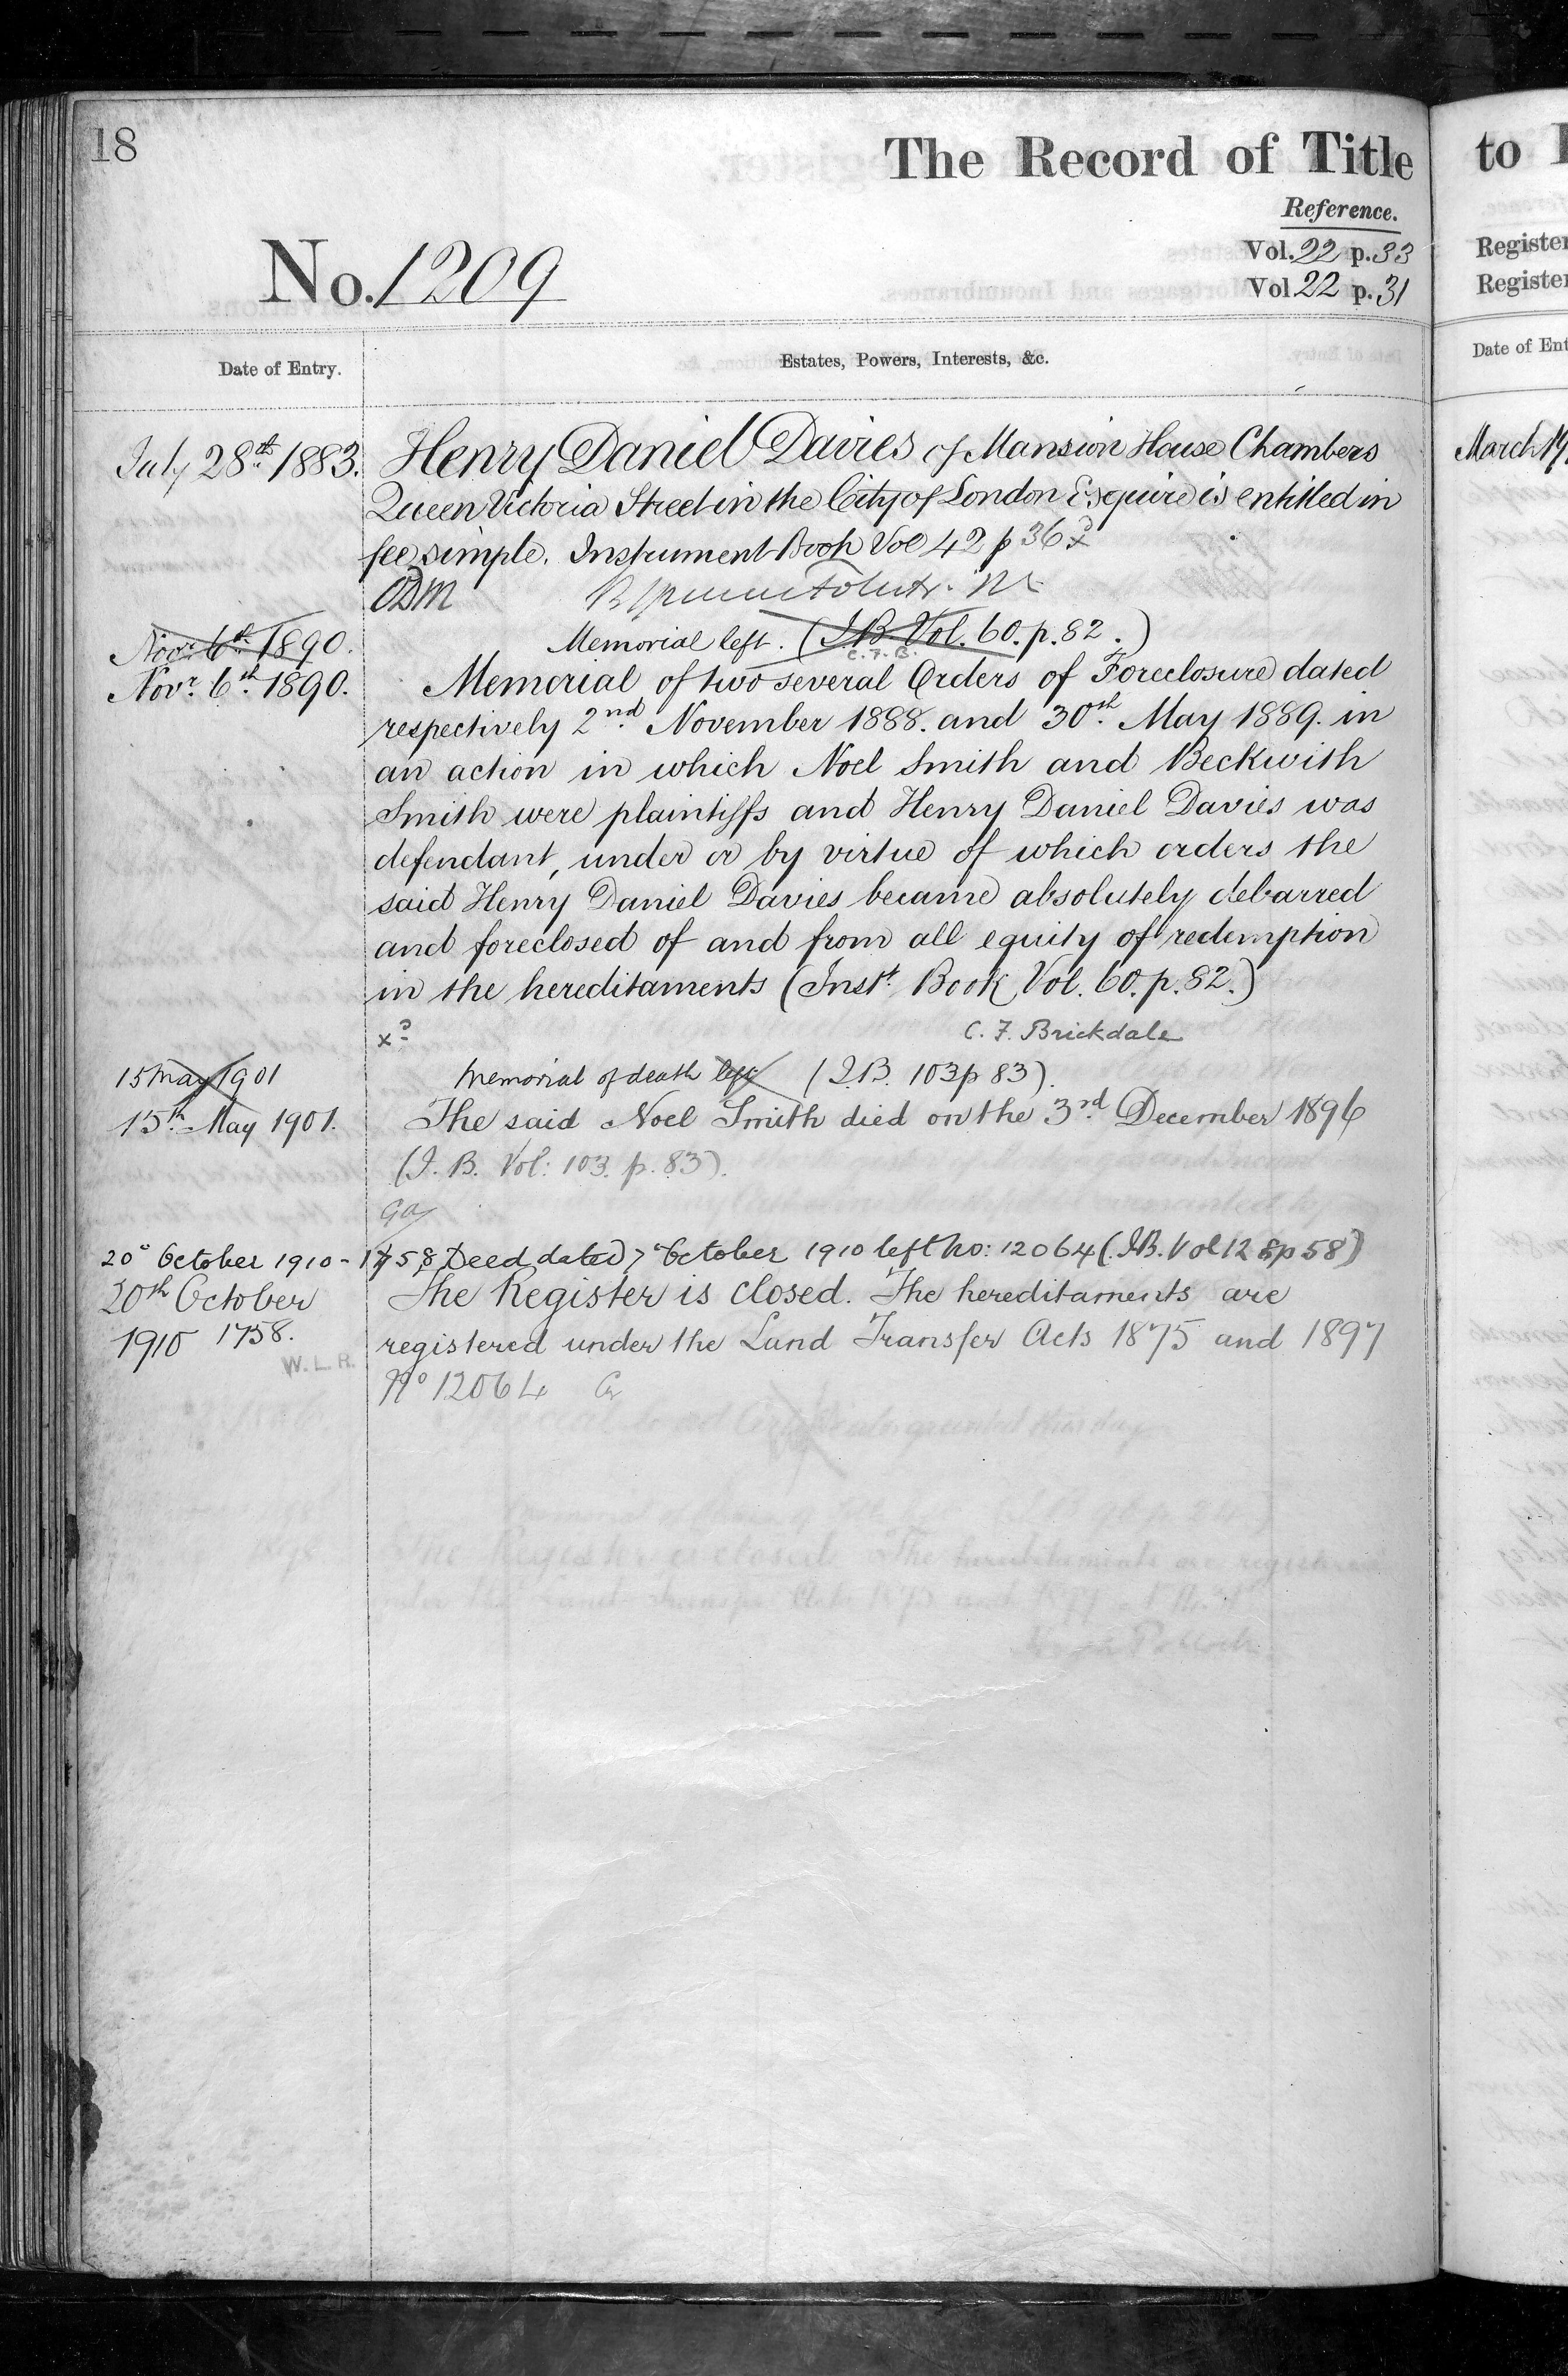 18
The Record of Title
Reference.
Vol. 22 p. 33
Vol 22 p. 31
No. 1209
Date of Entry.
Estates, Powers, Interests, &c.
July 28th 1883. Henry Daniel Davies of Mansion House Chambers
Queen Victoria Street in the City of London Esquire is entitled in
fee simple. Instrument Book Vol 42 p 36
Novr. 6th 1890. Memorial left. (I.B. Vol. 60. p. 82.)
C. F. B.
Novr. 6th 1890. Memorial of two several Orders of Foreclosure dated
respectively 2nd November 1888. and 30th May 1889. in
an action in which Noel Smith and Beckwith
Smith were plaintiffs and Henry Daniel Davies was
defendant, under or by virtue of which orders the
said Henry Daniel Davies became absolutely debarred
and foreclosed of and from all equity of redemption
in the hereditaments (Inst. Book Vol. 60. p. 82.)
C. F. Brickdale
15 May 1901 Memorial of death left (I.B. 103 p 83).
15th May 1901. The said Noel Smith died on the 3rd December 1896
(I. B. Vol: 103. p. 83).
20° October 1910 - 1758 Deed dated 7 October 1910 left No: 12064 (I.B. Vol 128 p 58)
20th October The Register is closed. The hereditaments are
1910 1758. registered under the Land Transfer Acts 1875 and 1897
W. L. R.
No 12064
to
Register
Register
Date of Ent
March 19